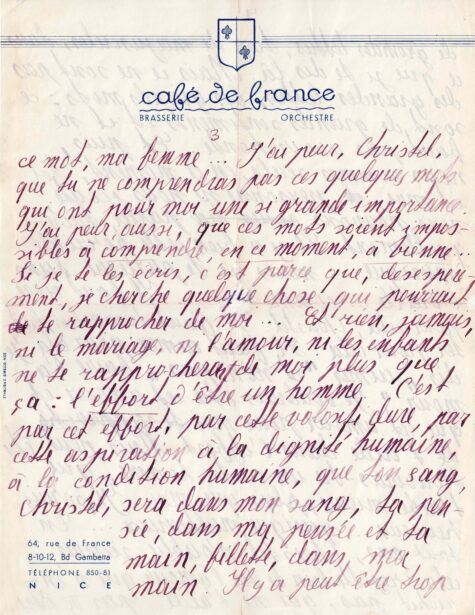 café de france
BRASSERIE ORCHESTRE
3
ce mot, ma femme... J'ai peur, Christel,
que tu ne comprendras pas ces quelques mots
qui ont pour moi une si grande importance
J'ai peur, aussi, que ces mots soient impos-
sibles à comprendre, en ce moment, à vienne..
Si je te les écris, c'est parce que, desespéré-
ment, je cherche quelque chose qui pourrait
te rapprocher de moi... Et rien, jamais,
ni le mariage, ni l'amour, ni les enfants
ne te rapprocheras de moi plus que
ça: l'effort d'être un homme. C'est
par cet effort, par cette volonté dure, par
cette aspiration à la dignité humaine,
à la condition humaine, que ton sang,
Christel, sera dans mon sang, ta pen-
sée, dans ma pensée et ta
main, fillette, dans ma
main. Il y a peut être trop
64, rue de France
8-10-12, Bd Gambetta
TÉLÉPHONE 850-81
NICE